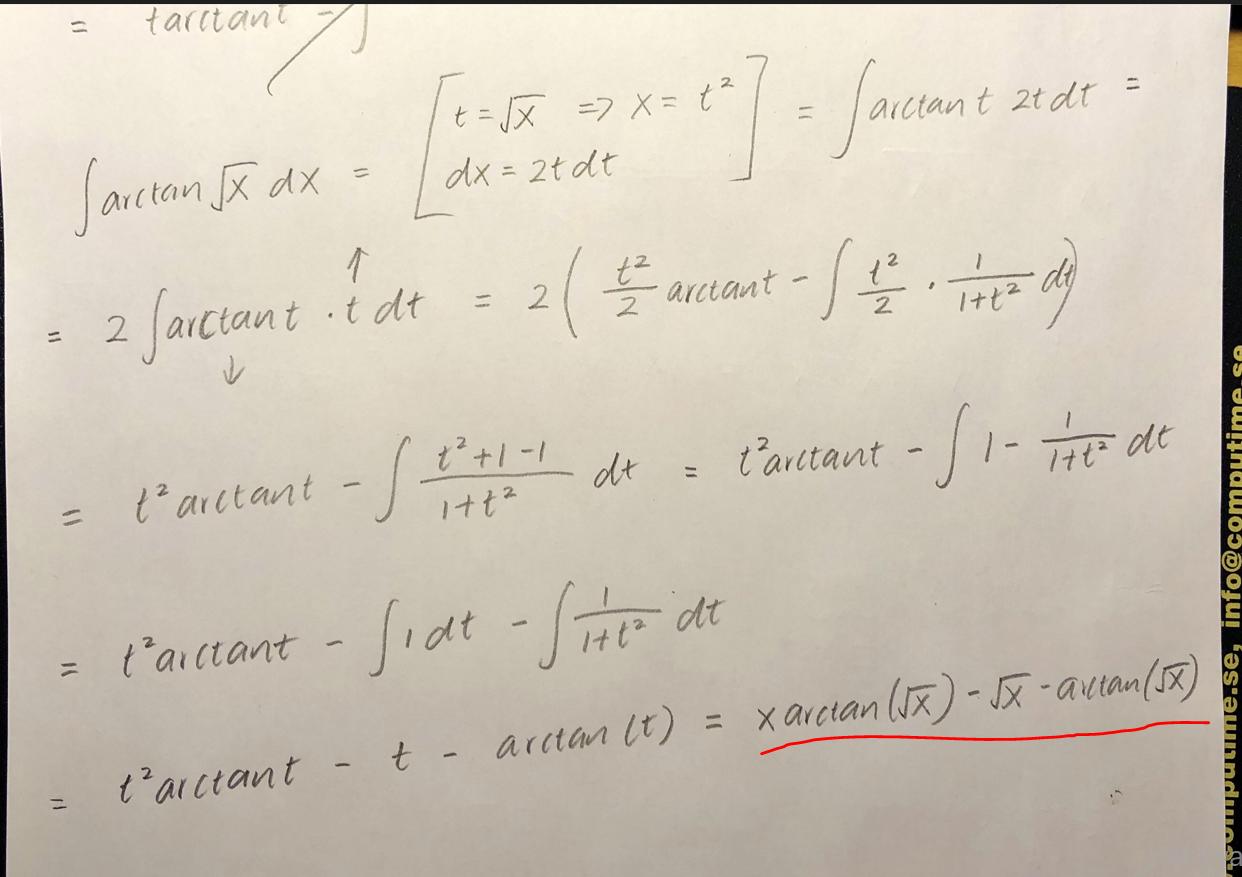 = t arctan t - ∫
∫ arctan √x dx = [ t = √x => x = t² dx = 2t dt ] = ∫ arctan t 2t dt =
= 2 ∫ arctan t · t dt = 2 ( t²/2 arctan t - ∫ t²/2 · 1/(1+t²) dt )
= t² arctan t - ∫ (t²+1-1)/(1+t²) dt = t² arctan t - ∫ 1 - 1/(1+t²) dt
= t² arctan t - ∫ 1 dt - ∫ 1/(1+t²) dt
= t² arctan t - t - arctan(t) = x arctan(√x) - √x - arctan(√x)
computime.se, info@computime.se